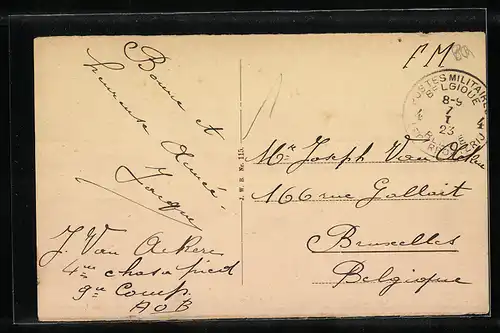 Bonne et
heureuse Année
Jacques
J. Van Ackere
4me chass à pied
9me Comp.
AOB
J. W. B. Nr. 115.
FM
POSTES MILITAIRES
BELGIQUE
8-9
7
I
23
4
4
Mr Joseph Van Ackere
166 rue Gallait
Bruxelles
Belgique